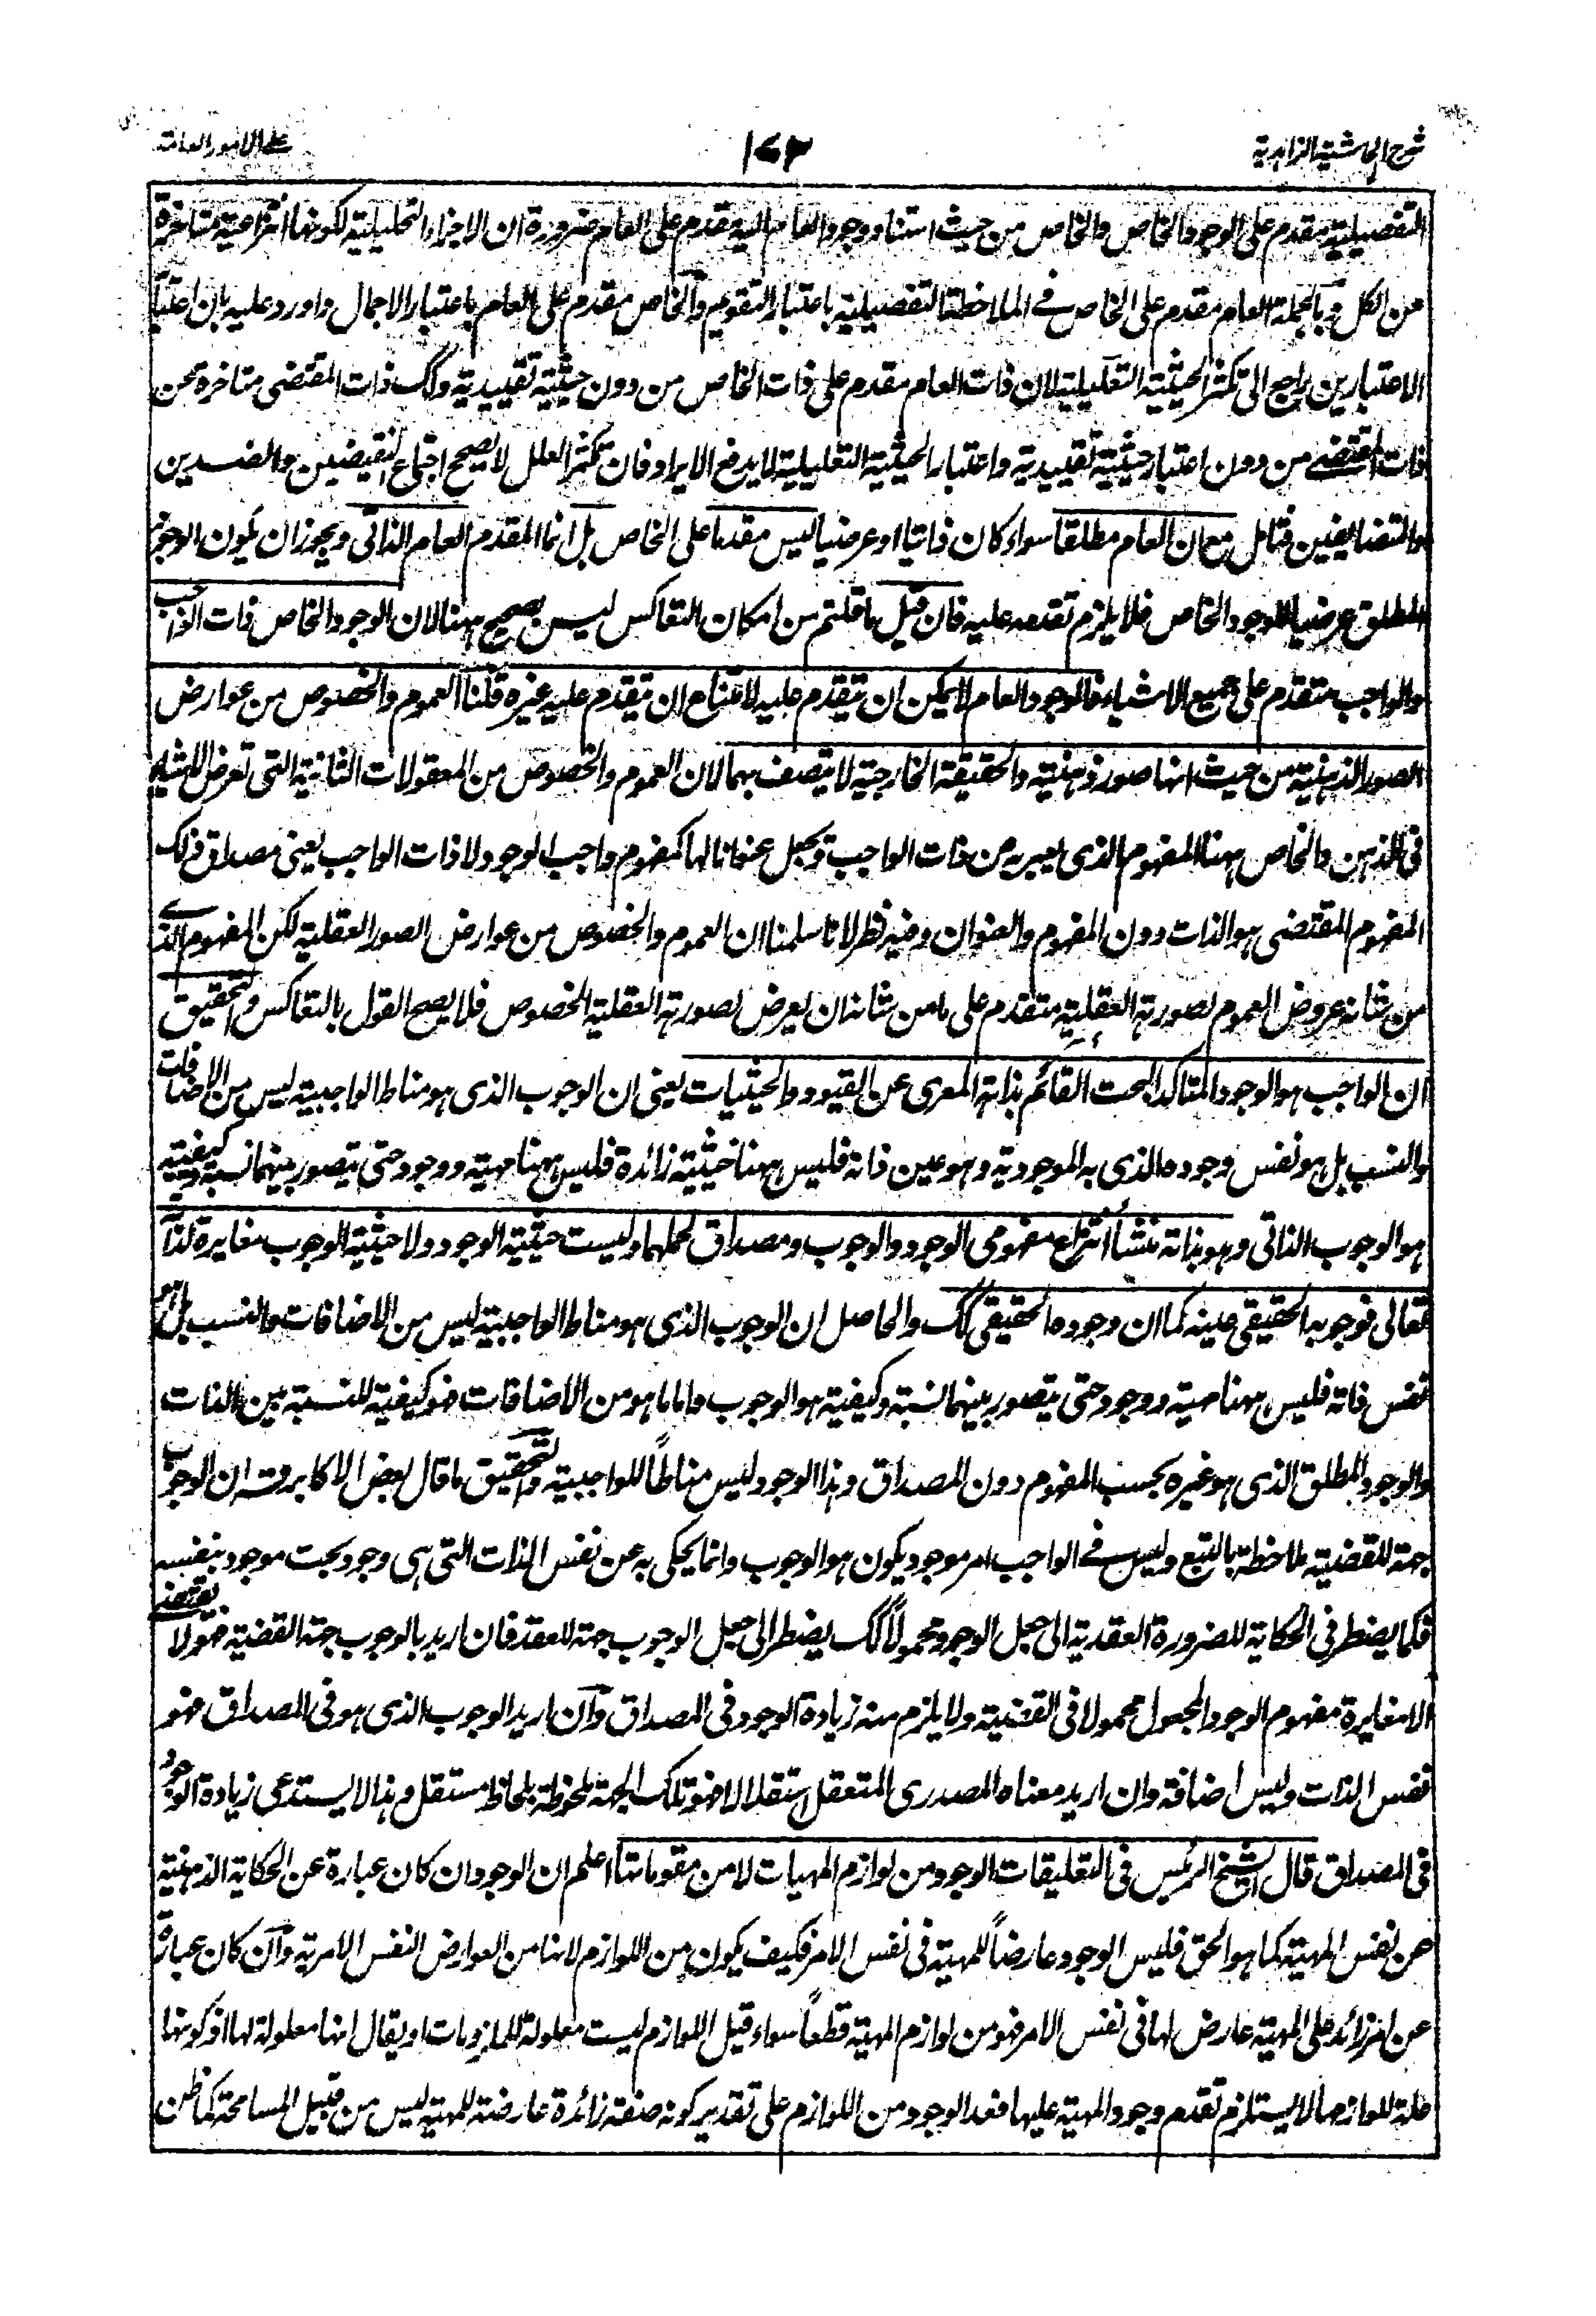 شرح الحاشية الزاهدية
١٧٣
على الامور العامة
التفصيلية مقدم على الوجود الخاص والخاص من حيث استناد وجود العام اليه مقدم على العام ضرورة ان الاجزاء التحليلية لكونها انتزاعية متاخرة
عن الكل وبالجملة العام مقدم على الخاص في الملاحظة التفصيلية باعتبار التقويم والخاص مقدم على العام باعتبار الاجمال واورد عليه بان اعتبا
الاعتبارين راجع الى تكثر الحيثية التعليلية لان ذات العام مقدم على ذات الخاص من دون حيثية تقييدية وكك ذات المقتضى متاخرة عن
ذات المقتضى من دون اعتبار حيثية تقييدية واعتبار الحيثية التعليلية لا يدفع الايراد فان تكثر العلل لا يصحح اجتماع النقيضين والضدين
والمتضايفين فتامل مع ان العام مطلقا سواء كان ذاتيا او عرضيا ليس مقدما على الخاص بل انما المقدم العام الذاتى ويجوز ان يكون الوجود
المطلق عرضيا للوجود الخاص فلا يلزم تقدمه عليه فان قيل ما قلتم من امكان التعاكس ليس بصحيح ههنا لان الوجود الخاص ذات الواجب
والواجب متقدم على جميع الاشياء فالوجود العام لا يمكن ان يتقدم عليه لامتناع ان يتقدم عليه غيره قلنا العموم والخصوص من عوارض
الصور الذهنية من حيث انها صور ذهنية والحقيقة الخارجية لا يتصف بهما لان العموم والخصوص من المعقولات الثانية التى تعرض للاشياء
فى الذهن والخاص ههنا المفهوم الذى يعبر به من ذات الواجب ويجعل عنوانا لها كمفهوم واجب الوجود لا ذات الواجب يعنى مصداق ذلك
المفهوم المقتضى هو الذات دون المفهوم والعنوان وفيه نظر لانا سلمنا ان العموم والخصوص من عوارض الصور العقلية لكن المفهوم الذى
من شانه عروض العموم لصورته العقلية متقدم على ما من شانه ان يعرض لصورته العقلية الخصوص فلا يصح القول بالتعاكس والتحقيق
ان الواجب هو الوجود المتاكد البحت القائم بذاته المعرى عن القيود والحيثيات يعنى ان الوجوب الذى هو مناط الواجبية ليس من الاضافات
والنسب بل هو نفس وجوده الذى به الموجودية وهو عين ذاته فليس ههنا حيثية زائدة فليس ههنا مهية ووجود حتى يتصور بينهما نسبة وكيفية
هو الوجوب الذاتى وهو بذاته منشأ انتزاع مفهومى الوجود والوجوب ومصداق لحملهما وليست حيثية الوجود ولا حيثية الوجوب مغايرة لذاته
تعالى فوجوبه الحقيقى عينه كما ان وجوده الحقيقى كك والحاصل ان الوجوب الذى هو مناط الواجبية ليس من الاضافات والنسب بل هو
نفس ذاته فليس ههنا مهية ووجود حتى يتصور بينهما نسبة وكيفية هو الوجوب واما ما هو من الاضافات فهو كيفية للنسبة بين الذات
والوجود المطلق الذى هو غيره بحسب المفهوم دون المصداق وهذا الوجود ليس مناطاً للواجبية والتحقيق ما قال بعض الاكابر قده ان الوجوب
جهة للقضية ملاحظة بالتبع وليس في الواجب امر موجود يكون هو الوجوب وانما يحكى به عن نفس الذات التى هى وجود بحت موجود بنفسه
فكما يضطر فى الحكاية للضرورة العقدية الى جعل الوجود محمولاً كك يضطر الى جعل الوجوب جهة للعقد فان اريد بالوجوب جهة القضية فهو لا يقتضى
الا مغايرة مفهوم الوجود المجعول محمولا فى القضية ولا يلزم منه زيادة الوجود فى المصداق وان اريد الوجوب الذى هو فى المصداق فهو
نفس الذات وليس اضافة وان اريد معناه المصدرى المتعقل استقلالا فهو تلك الجهة ملحوظة بلحاظ مستقل وهذا لا يستدعى زيادة الوجود
فى المصداق قال الشيخ الرئيس فى التعليقات الوجود من لوازم المهيات لا من مقوماتها اعلم ان الوجود ان كان عبارة عن الحكاية الذهنية
عن نفس المهية كما هو الحق فليس الوجود عارضاً للمهية فى نفس الامر فكيف يكون من اللوازم لانها من العوارض النفس الامرية وان كان عبارة
عن امر زائد على المهية عارض لها فى نفس الامر فهو من لوازم المهية قطعاً سواء قيل اللوازم ليست معلولة للملزومات او يقال انها معلولة لها اذ كونها
علة للوازمها لا يستلزم تقدم وجود المهية عليها فعد الوجود من اللوازم على تقدير كونه صفة زائدة عارضة للمهية ليس من قبيل المسامحة كما ظن